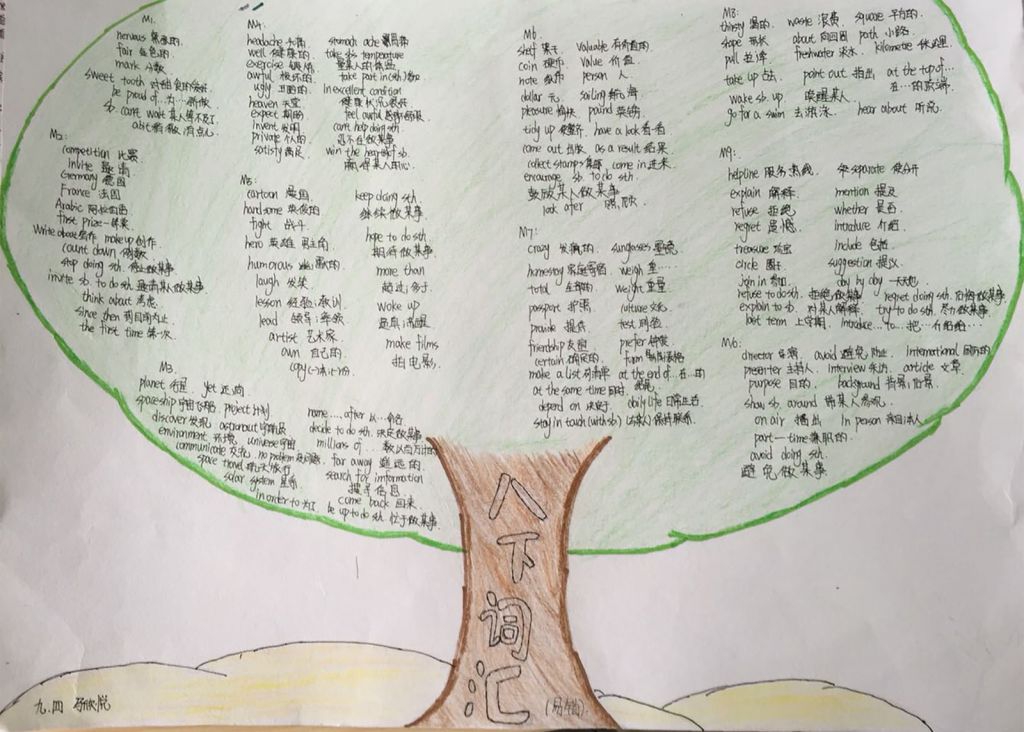 M1.
nervous 紧张的.
fair 金色的.
mark 分数
sweet tooth
be proud of...为...骄傲
sb. can't wait 某人等不及了
a bit 稍微,有点儿
M2:
competition 比赛
Invite 邀请
Germany 德国
France 法国
Arabic 阿拉伯语
first prize 一等奖
write about 写作 make up 创作.
count down 倒数
stop doing sth. 停止做某事
invite sb. to do sth 邀请某人做某事
think about 考虑
since then
the first time 第一次
M3.
planet 行星 yet 还,尚
spaceship 宇宙飞船 project 计划
discover 发现 astronaut 宇航员
environment 环境 universe 宇宙
communicate 交流 no problem 没问题
space travel 航天旅行
solar system
in order to 为了
name...after 以...命名
decide to do sth. 决定做某事
millions of...
far away 遥远的
search for information
搜寻信息
come back 回来
be up to do sth.
M4:
headache 头痛
well 健康的
exercise 锻炼
awful 极坏的
ugly 丑陋的
heaven 天堂
expect 期盼
invent 发明
private 个人的
satisfy 满足
stomach ache 胃痛
take sb's temperature
量某人的体温
take part in (sth)
in excellent condition
健康状况很好
feel awful
can't help doing sth.
忍不住做某事
win the heart of sb.
赢得某人的心
M5:
cartoon 漫画
handsome 英俊的
fight 战斗
hero 英雄 男主角
humorous 幽默的
laugh 发笑
lesson 经验;教训
lead 领导;率领
artist 艺术家
own 自己的
copy (一)本;(一)份
keep doing sth.
继续做某事
hope to do sth
期待做某事
more than
超过;多于
make films
拍电影
M6.
shelf 架子 valuable 有价值的
coin 硬币 value 价值
note 纸币 person 人
dollar 元 sailing 航海
pleasure 愉快 pound 英镑
tidy up 收整齐 have a look 看一看
come out 出版 as a result 结果
collect stamps 集邮 come in 进来
encourage sb. to do sth
鼓励某人做某事
look after 照顾
M7:
crazy 发疯的 sunglasses 墨镜
homestay 家庭寄宿 weigh 重......
total 全部的 weight 重量
passport 护照 culture 文化
provide 提供 test 测验
friendship 友谊 prefer 钟爱
certain 确定的 form 表格
make a list 列清单 at the end of...在...的
at the same time 同时
depend on 决定于 daily life 日常生活
stay in touch (with sb) (与某人)保持联系
M8:
thirsty 渴的 waste 浪费 square 平方的
shape 形状 about 向四周 path 小路
pull 拉,牵 freshwater 淡水
take up 占去 point out 指出 at the top of...
在...的顶端
wake sb. up 唤醒某人
go for a swim 去游泳 hear about 听说
M9:
helpline 服务热线 separate 使分开
explain 解释 mention 提及
refuse 拒绝 whether 是否
regret 遗憾 introduce 介绍
treasure 珍宝 include 包括
circle 圈子 suggestion 提议
join in 参加 day by day 一天天地
refuse to do sth. 拒绝做某事 regret doing sth. 后悔做某事
explain to sb. 对某人解释 try to do sth. 尽力做某事
last term 上学期 introduce...to...把...介绍给...
M10:
director 导演 avoid 避免,防止 international 国际的
presenter 主持人 interview 采访 article 文章
purpose 目的 background 背景,后景
show sb. around 带某人参观
on air 播出 in person 亲自,本人
part-time 兼职的
avoid doing sth.
避免做某事
八
下
词
汇
九.四